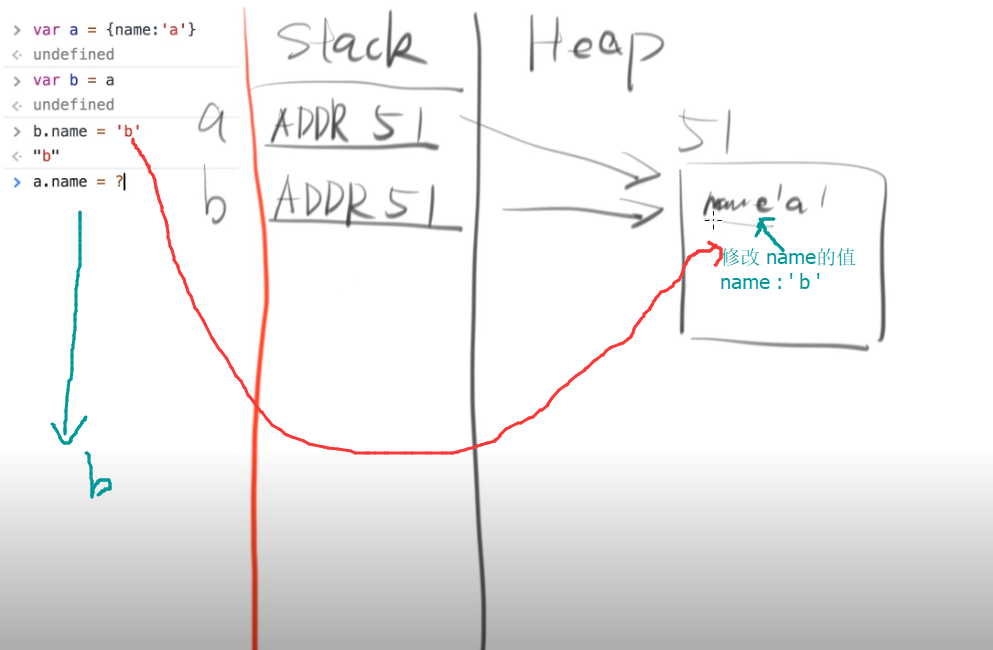 > var a = {name:'a'}
<· undefined
> var b = a
<· undefined
> b.name = 'b'
<· "b"
> a.name = ?
Stack
Heap
a
ADDR 51
b
ADDR 51
51
name 'a'
修改 name的值
name : ' b '
b